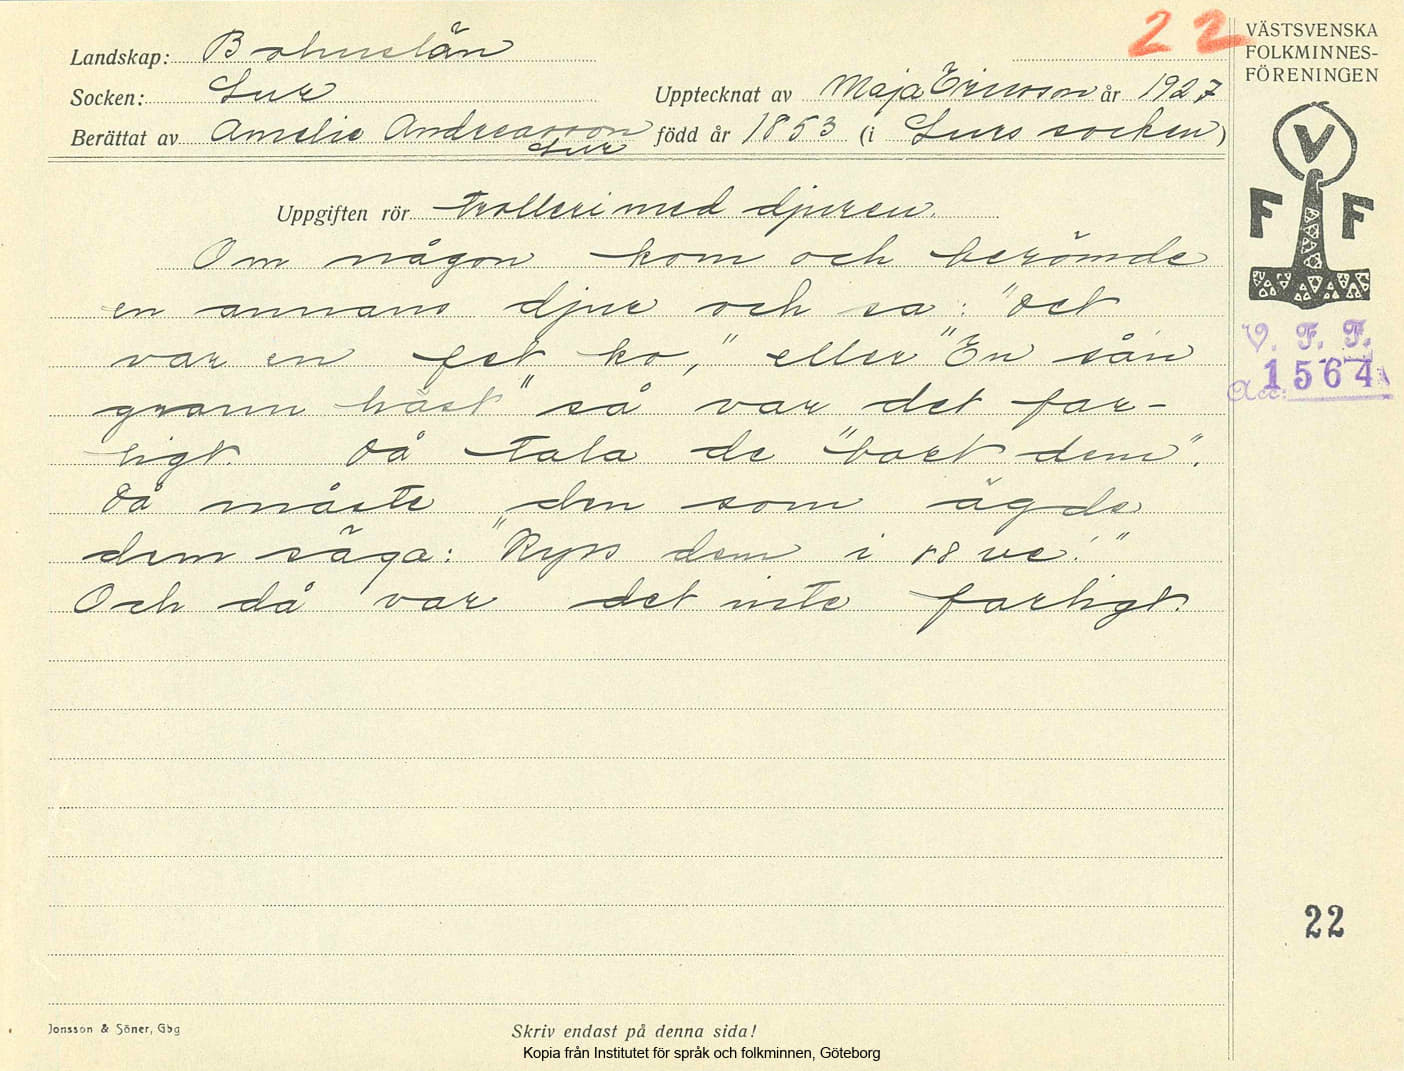 22
VÄSTSVENSKA
FOLKMINNES-
FÖRENINGEN
Landskap: Bohuslän
Socken: Lur
Upptecknat av Maja Ericsson år 1927
Berättat av Amelie Andreasson
Lur
född år 1853 (i Lurs socken)
VFF
V. F. F.
Acc: 1564
Uppgiften rör trolleri med djuren.
Om någon kom och berömde
en annans djur och sa: "Det
var en fet ko," eller "En sån
grann häst" så var det far-
ligt. Då tala de "bort dem".
Då måste den som ägde
dem säga: "Kyss dem i ve!"
Och då var det inte farligt.
22
Jonsson & Söner, Gbg
Skriv endast på denna sida!
Kopia från Institutet för språk och folkminnen, Göteborg